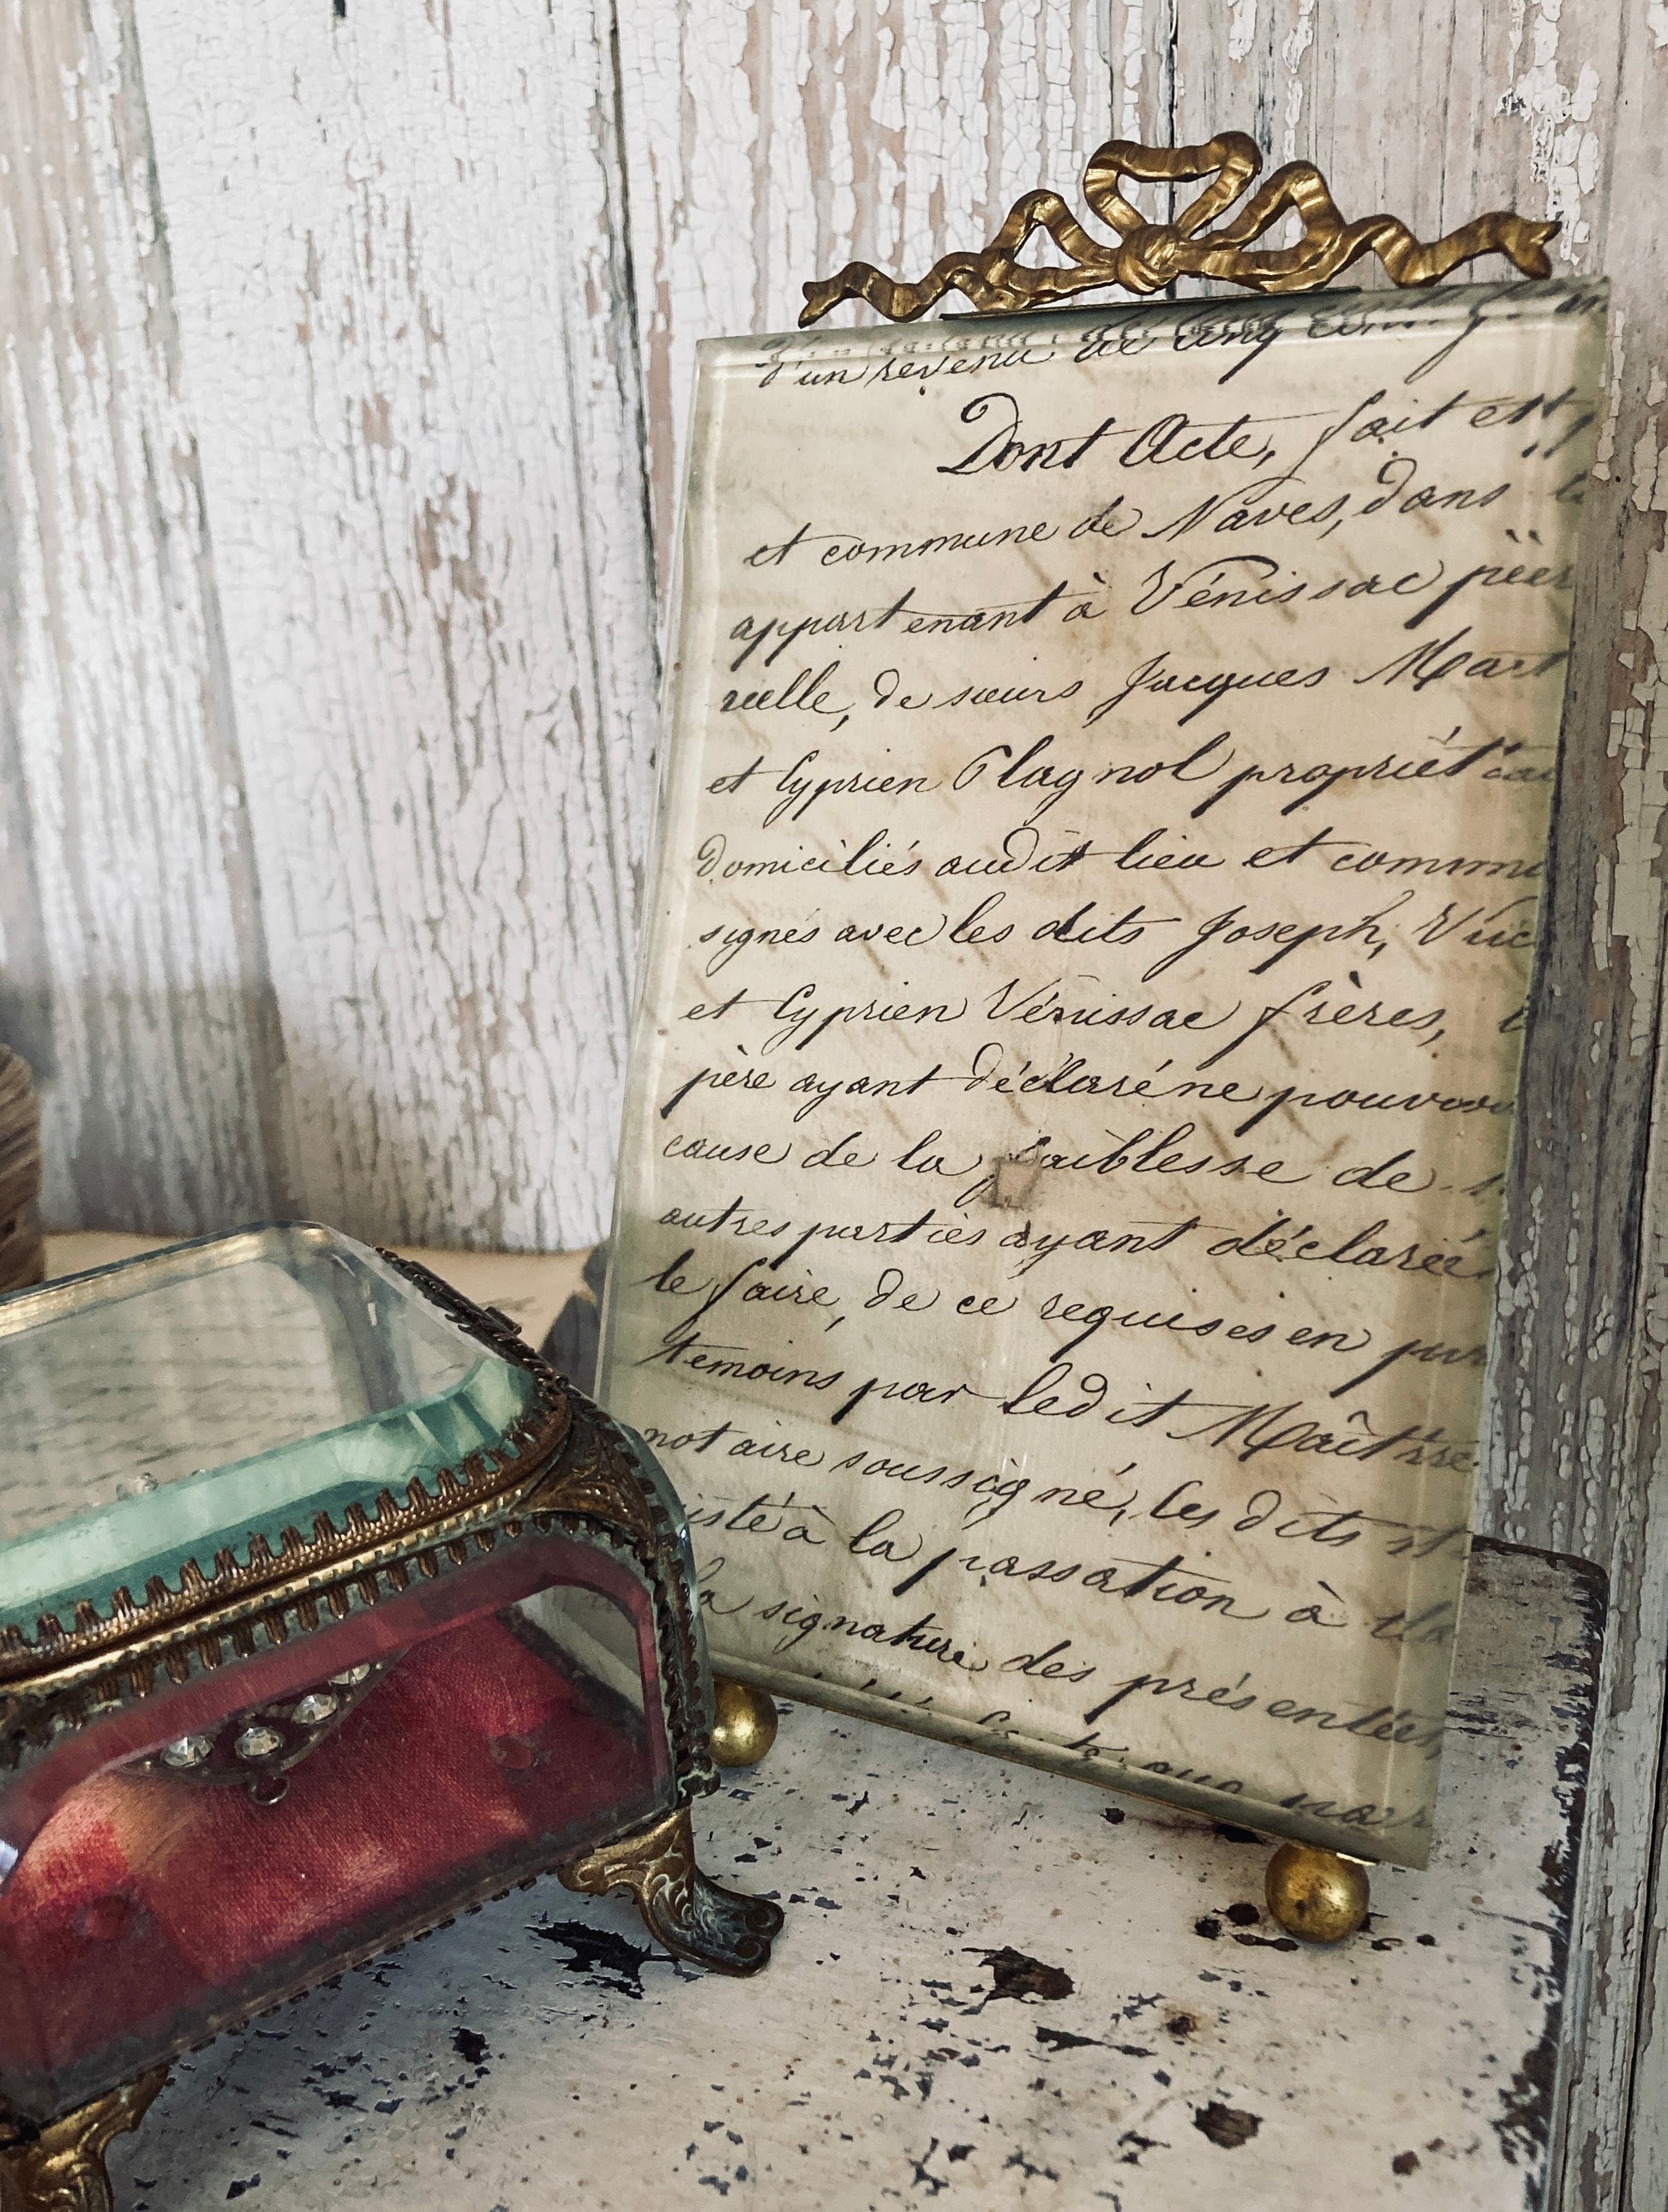 d'un revenu de Cinq cents
Dont Acte, fait et
et commune de Naves, dans
appartenant à Vénissac père
ruelle, de sieurs Jacques Mart
et Cyprien Plagnol propriétai
domiciliés audit lieu et commu
signés avec les dits Joseph, Vic
et Cyprien Vénissac frères,
père ayant déclaré ne pouvoir
cause de la faiblesse de
autres parties ayant déclaré
le faire, de ce requises en
temoins par ledit Maître
notaire soussigné, les dits
isté à la passation à la
la signature des présentes,
que